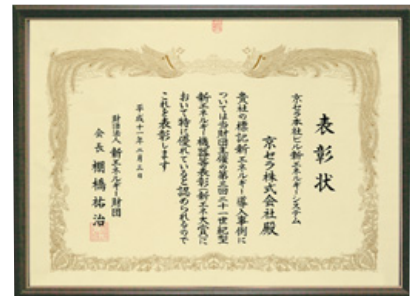 表彰状
京セラ本社ビル新エネルギーシステム
京セラ株式会社殿
貴社の標記新エネルギー導入事例に
ついては当財団主催の第三回二十一世紀型
新エネルギー機器等表彰(新エネ大賞)に
おいて特に優れていると認められるので
これを表彰します
平成十一年二月三日
財団法人 新エネルギー財団
会長 棚橋祐治